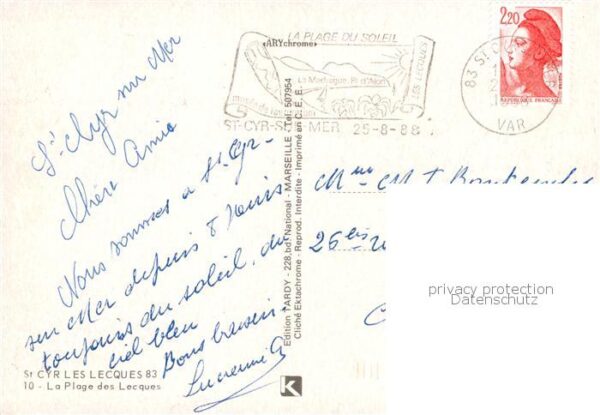 LA PLAGE DU SOLEIL
«ARYchrome»
La Madrague, Pt d'Alon
LES LECQUES
ST-CYR-S-MER 25-8-88
83 ST
VAR
2,20
REPUBLIQUE FRANCAISE
St Cyr sur Mer
Chère Amie
Nous sommes a St Cyr
sur Mer depuis 8 jours
toujours du soleil, du
ciel bleu
Bons baisers
Lucienne
Edition TARDY - 228, bd National - MARSEILLE - Tel. 507954
Cliché Ektachrome - Reprod. Interdite - Imprimé en C.E.E.
26 bis
privacy protection
Datenschutz
St CYR LES LECQUES 83
10 - La Plage des Lecques
K